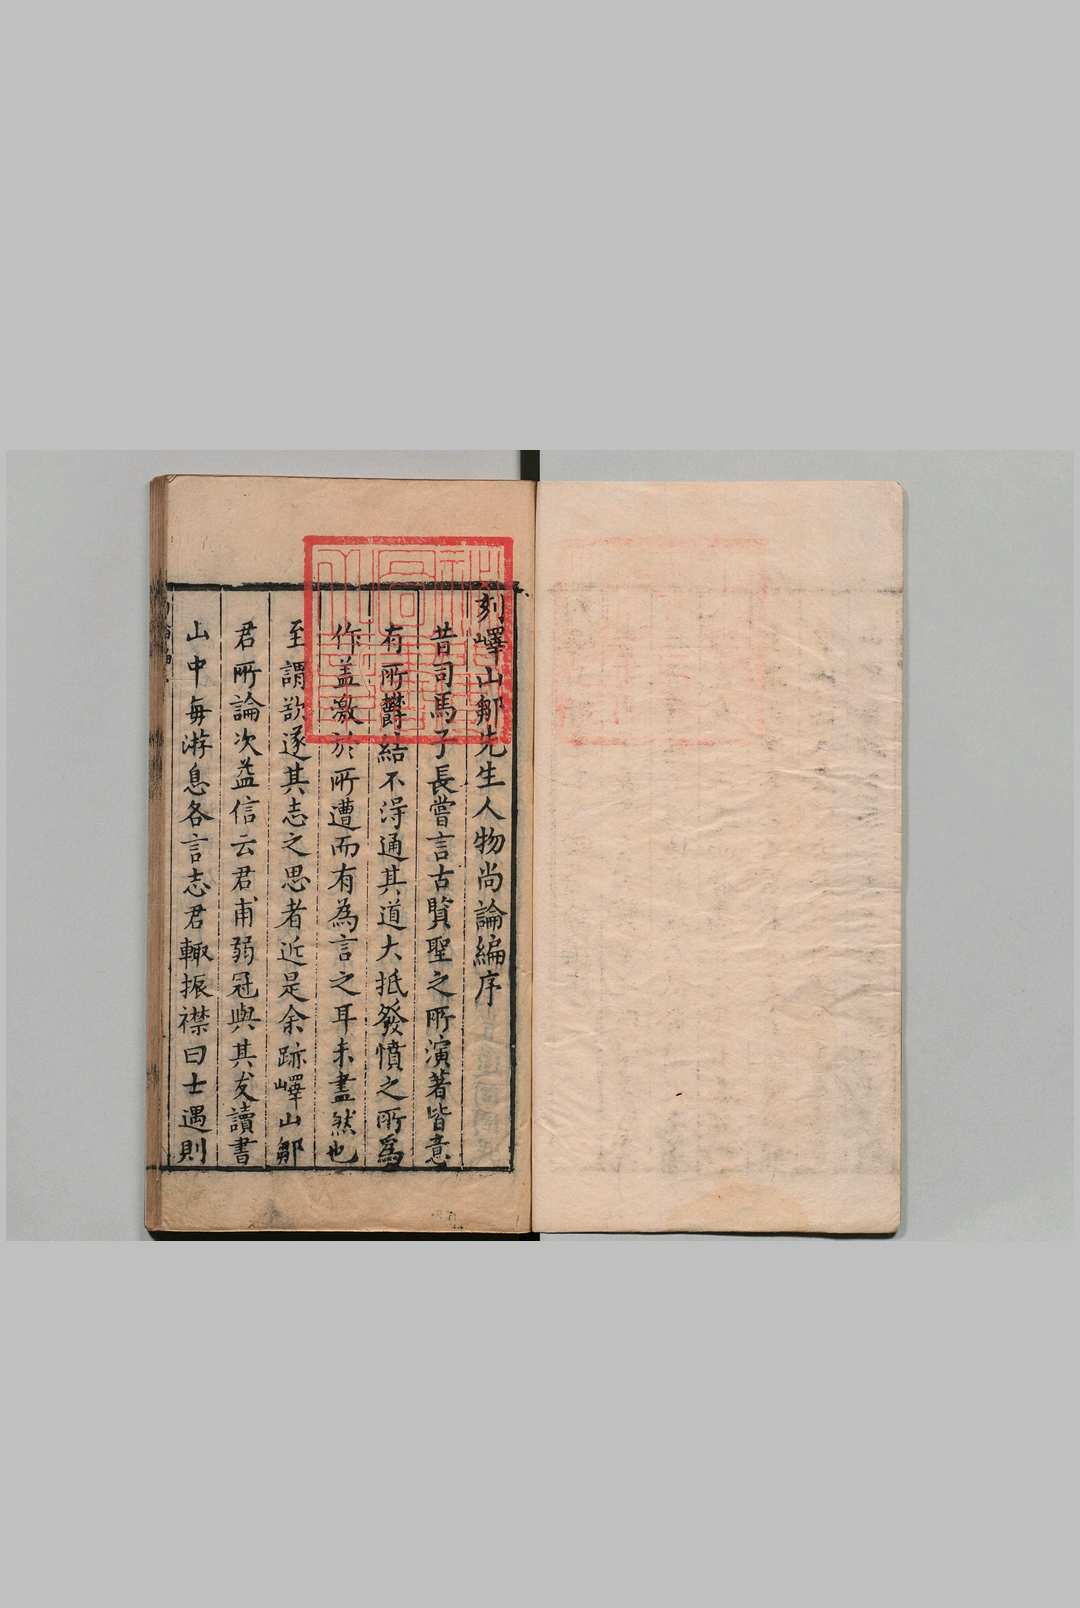 刻嶧山鄒先生人物尚論編序
昔司馬子長嘗言古賢聖之所演著皆意
有所鬱結不得通其道大抵發憤之所為
作盖激於所遭而有為言之耳未盡然也
至謂欲遂其志之思者近是余跡嶧山鄒
君所論次益信云君甫弱冠與其友讀書
山中每游息各言志君輙振襟曰士遇則